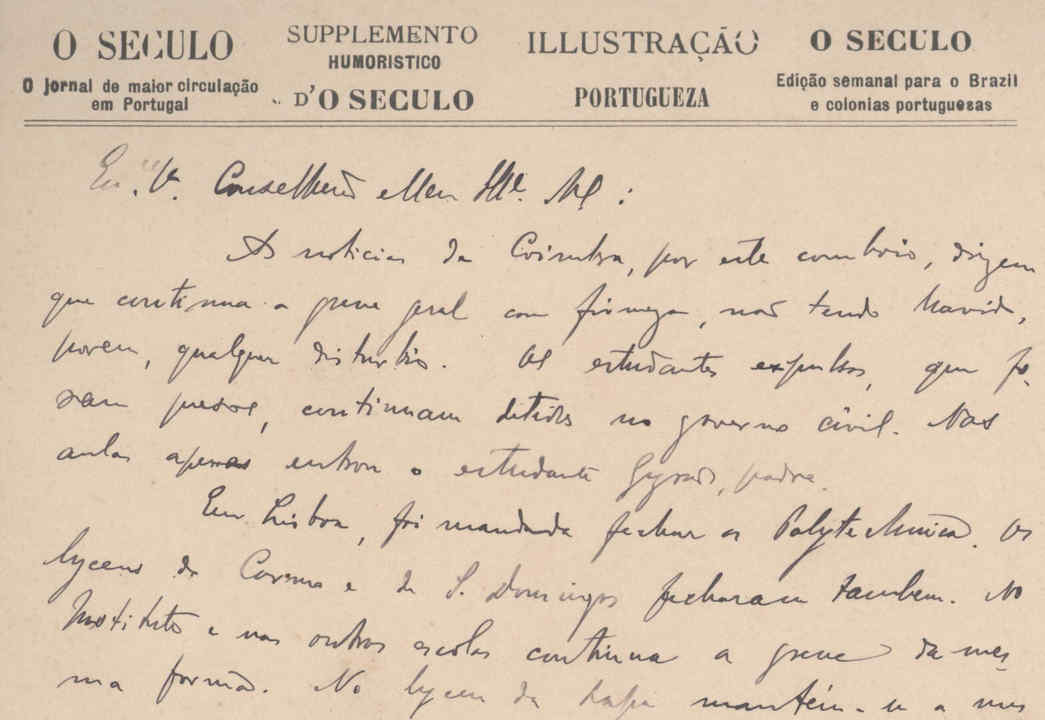 O SECULO
O jornal de maior circulação
em Portugal
SUPPLEMENTO
HUMORISTICO
D'O SECULO
ILLUSTRAÇÃO
PORTUGUEZA
O SECULO
Edição semanal para o Brazil
e colonias portuguesas
Conselheiro e Meu :
As noticias de Coimbra, por este comboio, dizem
que continua a greve geral com firmeza, não tendo havido,
porem, qualquer disturbio. Os estudantes expulsos, que fo-
ram presos, continuam detidos no governo civil. Nas
aulas apenas entrou o estudante padre.
Em Lisboa, foi mandada fechar a Polytechnica. Os
lyceus do Carmo e de S. Domingos fecharam tambem. No
Instituto e nas outras escolas continua a greve da mes-
ma forma. No lyceu da Lapa mantém-se a mes